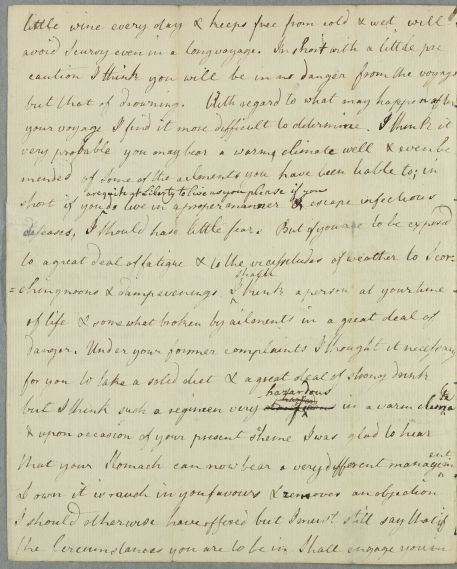 little wine every day & keeps free from cold & wet will
avoid Scurvy even in a long voyage. In short with a little pre
caution I think you will be in no danger from the voyage
but that of drowning. With regard to what may happen after
your voyage I find it more difficult to determine. I think it
very probable you may bear a warm climate well & even be
mended of some of the ailments you have been liable to; in
are quite at Liberty to live as you please if you
short if you do live in a proper manner & escape infectious
diseases, I should have little fear. But if you are to be exposed
to a great deal of fatigue & to the vicissitudes of weather to Scor-
=ching noons & damp evenings I think a person at your time
of life & somewhat broken by ailments in a great deal of
danger. Under your former complaints I thought it necessary
for you to take a solid diet & a great deal of strong drink
hazardous
but I think such a regimen very in a warm clima
te
& upon occasion of your present Scheme I was glad to hear
that your Stomach can now bear a very different managem
ent
I own it is much in your favours & removes an objection
I should otherwise have offered but I must still say that if
the Circumstances you are to be in Shall engage you in